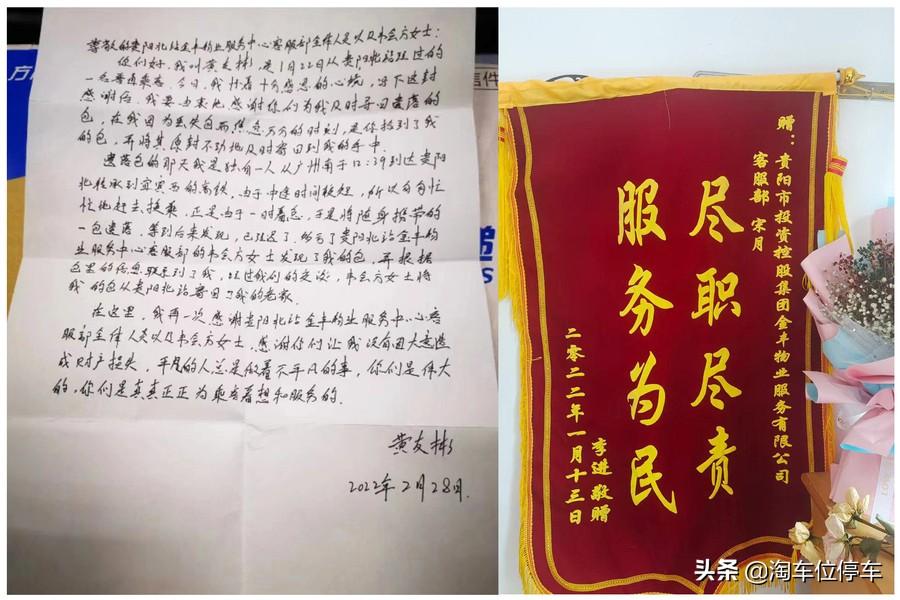 尊敬的贵阳北站金丰物业服务中心客服部全体人员以及韦会方女士:
你们好,我叫黄友彬,是1月22日从贵阳北站经过的
一名普通乘客。今日,我怀着十分感恩的心境,写下这封
感谢信。我要由衷地感谢你们为我及时寄回遗落的
包,在我因为丢失包而焦急万分的时刻,是你捡到了我
的包,并将其原封不动地及时寄回到我的手中。
遗落包的那天我是独自一人从广州南于12:39到达贵阳
北转乘到宜宾西的高铁,由于中途时间较短,所以匆匆忙
忙地赶去换乘,正是由于一时着急,于是将随身携带的
一包遗落,等到后来发现,已经迟了,贵阳北站金丰物
业服务中心客服部的韦会方女士发现了我的包,并根据
包里的信息联系到了我,经过我们的交谈,韦会方女士将
我的包从贵阳北站寄回了我的老家.
在这里,我再一次感谢贵阳北站金丰物业服务中心客
服部全体人员以及韦会方女士,感谢你们让我没有因大意造
成财产损失,平凡的人总是做着不平凡的事,你们是伟大
的,你们是真真正正为乘客着想和服务的.
黄友彬
2022年2月28日.
赠:贵阳市投资控股集团金丰物业服务有限公司
客服部 宋月
尽职尽责
服务为民
李进 敬赠
二零二二年一月十三日
头条 @淘车位停车